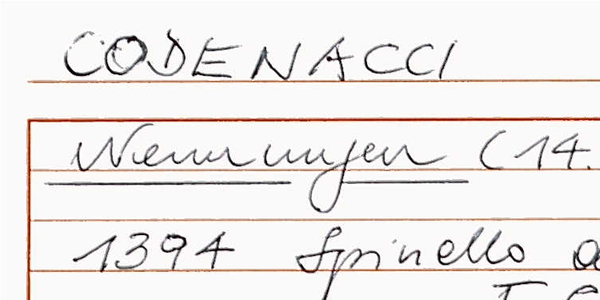 CODENACCI
Nennungen (14.
1394 Spinello